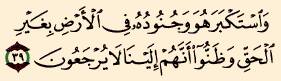 وَٱسْتَكْبَرَ هُوَ وَجُنُودُهُۥ فِى ٱلْأَرْضِ بِغَيْرِ
ٱلْحَقِّ وَظَنُّوٓا۟ أَنَّهُمْ إِلَيْنَا لَا يُرْجَعُونَ ٣٩